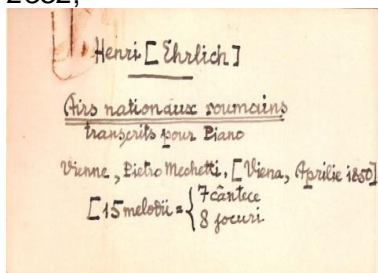 2682,
Henri [Ehrlich]
Airs nationaux roumains
transcrits pour Piano
Vienne, Pietro Mechetti, [Viena, Aprilie 1850]
[15 melodii = { 7 cântece
8 jocuri.